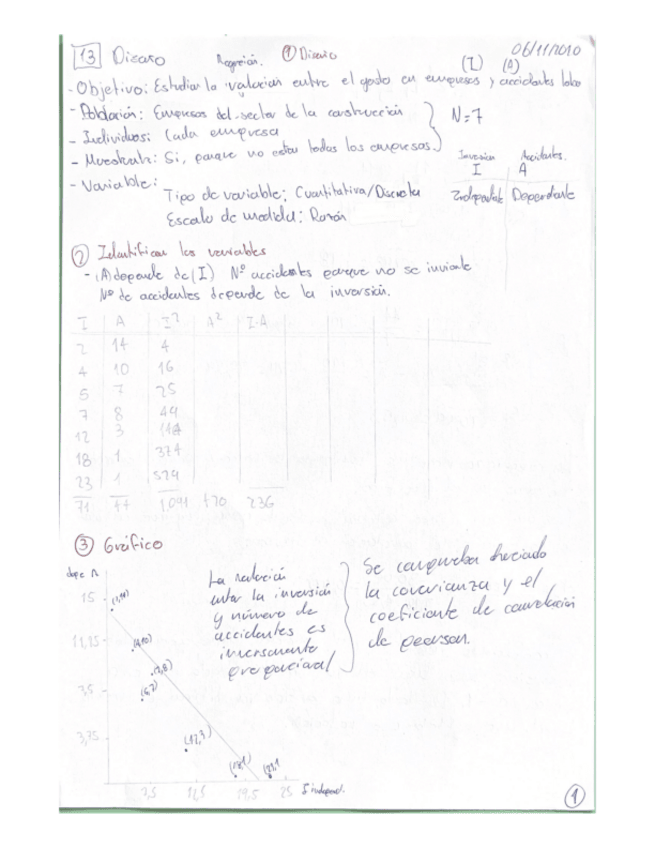 06/11/2010
13 Diseño Regresión. ① Diseño
(I) (A)
- Objetivo: Estudiar la relación entre el gasto en empresas y accidentes labo
- Población: Empresas del sector de la construcción
- Individuos: Cada empresa
N=7
- Muestral: Si, porque no están todas las empresas.
- Variable:
Inversión Accidentes.
I A
Independiente Dependiente
Tipo de variable: Cuantitativa/Discreta
Escala de medida: Razón
② Identificar las variables
- (A) depende de (I) Nº accidentes porque no se invierte
Nº de accidentes depende de la inversión.
I A I² A² I·A
2 14 4
4 10 16
5 7 25
7 8 49
12 3 144
18 1 324
23 1 529
71 44 1,091 420 236
③ Gráfico
depe A
La relación
entre la inversión
y número de
accidentes es
inversamente
proporcional
Se comprueba haciendo
la covarianza y el
coeficiente de correlación
de pearson.
15 (2,14)
11,25 (4,10)
(7,8)
7,5 (5,7)
3,75 (12,3)
(18,1) (23,1)
7,5 12,5 19,5 25 I independ.
1